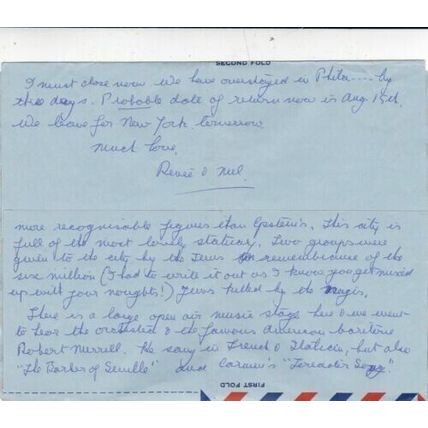 SECOND FOLD
I must close now. We have overstayed in Phila.... by
two days. Probable date of return now is Aug 15th.
We leave for New York tomorrow.
Much love,
Renée & Neil.
more recognisable figures than Epstein's. This city is
full of the most lovely statuary. Two groups were
given to the city by the Jews in remembrance of the
six million (I had to write it out as I know you get mixed
up with your noughts!) Jews killed by the Nazis.
There is a large open air music stage here & we went
to hear the orchestra & the famous American baritone
Robert Merrill. He sang in French & Italian, but also
"The Barber of Seville" and Carmen's "Toreador Song."
FIRST FOLD